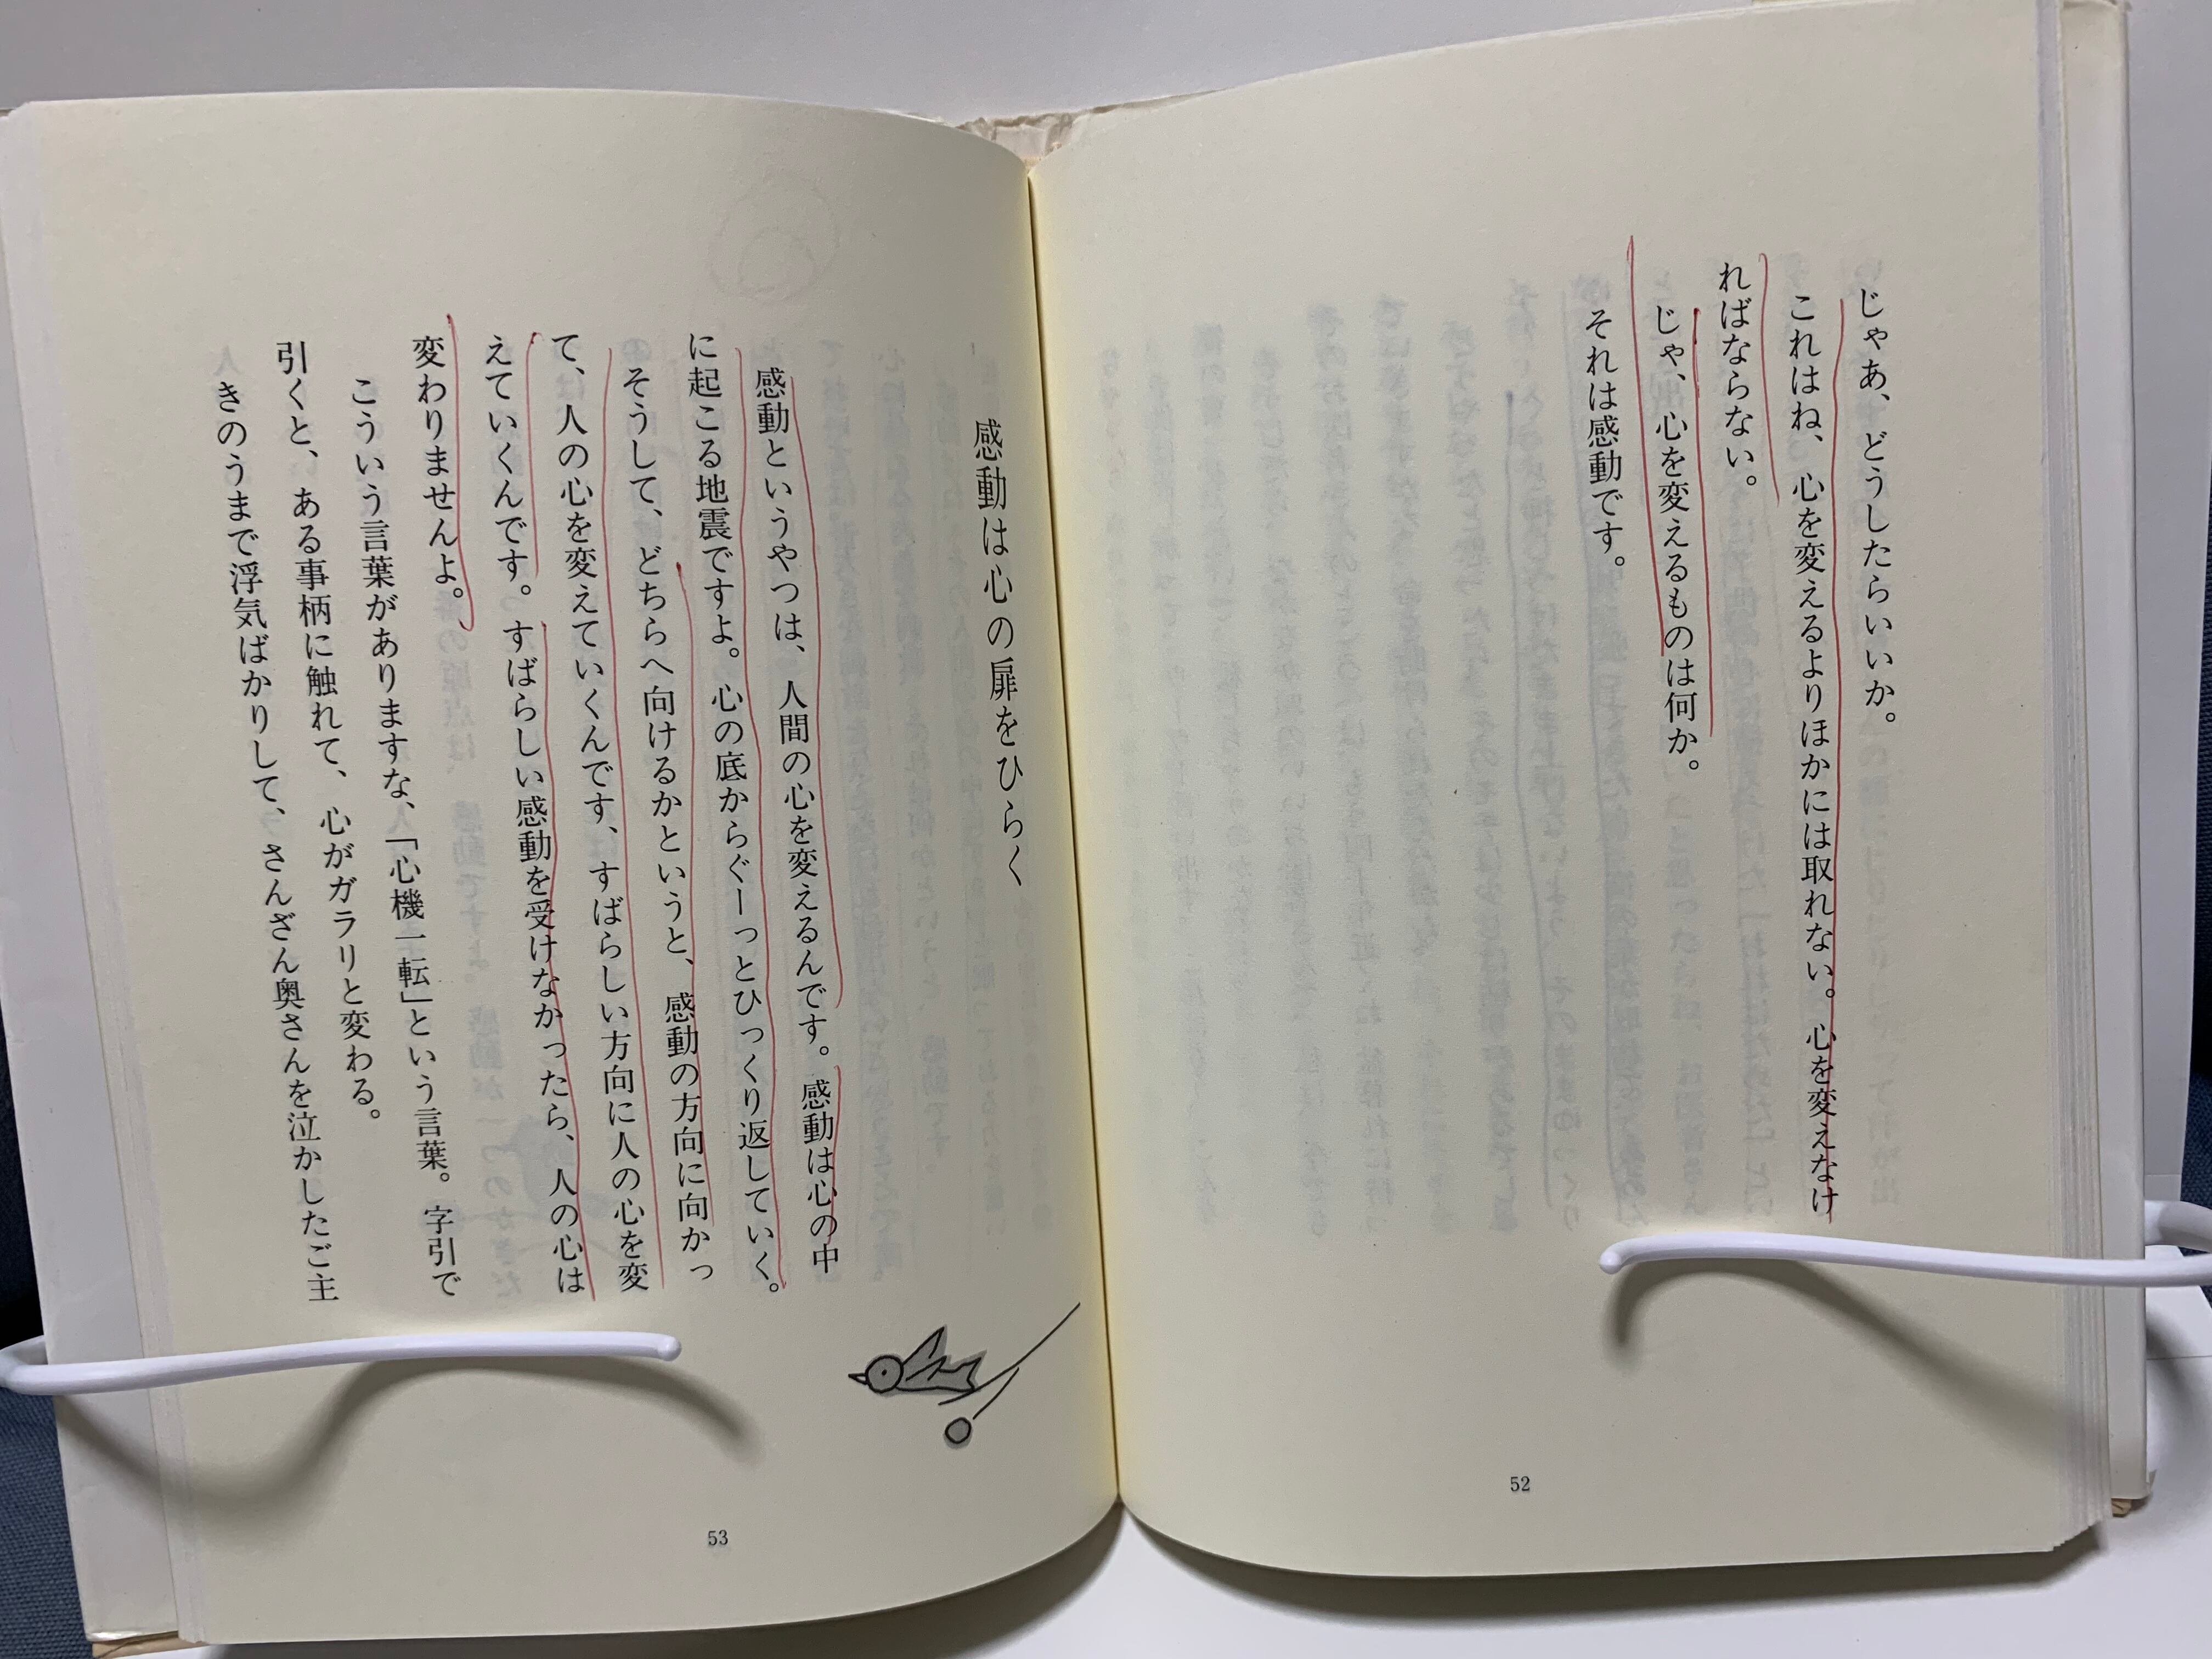 じゃあ、どうしたらいいか。
これはね、心を変えるよりほかには取れない。心を変えなけ
ればならない。
じゃ、心を変えるものは何か。
それは感動です。
52
感動は心の扉をひらく
感動というやつは、人間の心を変えるんです。感動は心の中
に起こる地震ですよ。心の底からぐーっとひっくり返していく。
そうして、どちらへ向けるかというと、感動の方向に向かっ
て、人の心を変えていくんです、すばらしい方向に人の心を変
えていくんです。すばらしい感動を受けなかったら、人の心は
変わりませんよ。
こういう言葉がありますな、「心機一転」という言葉。字引で
引くと、ある事柄に触れて、心がガラリと変わる。
きのうまで浮気ばかりして、さんざん奥さんを泣かしたご主
53